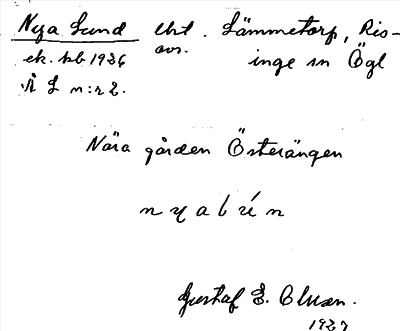 Nya Lund Ekt. Lämmetorp, Ris-
avs.
ek. kb 1936 inge sn Ögl
Å L n:r 2.
Nära gården Österängen
n y a b ú n
Gustaf E.
1937